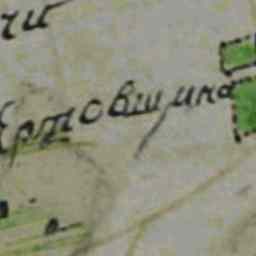 чи
Ертовщина